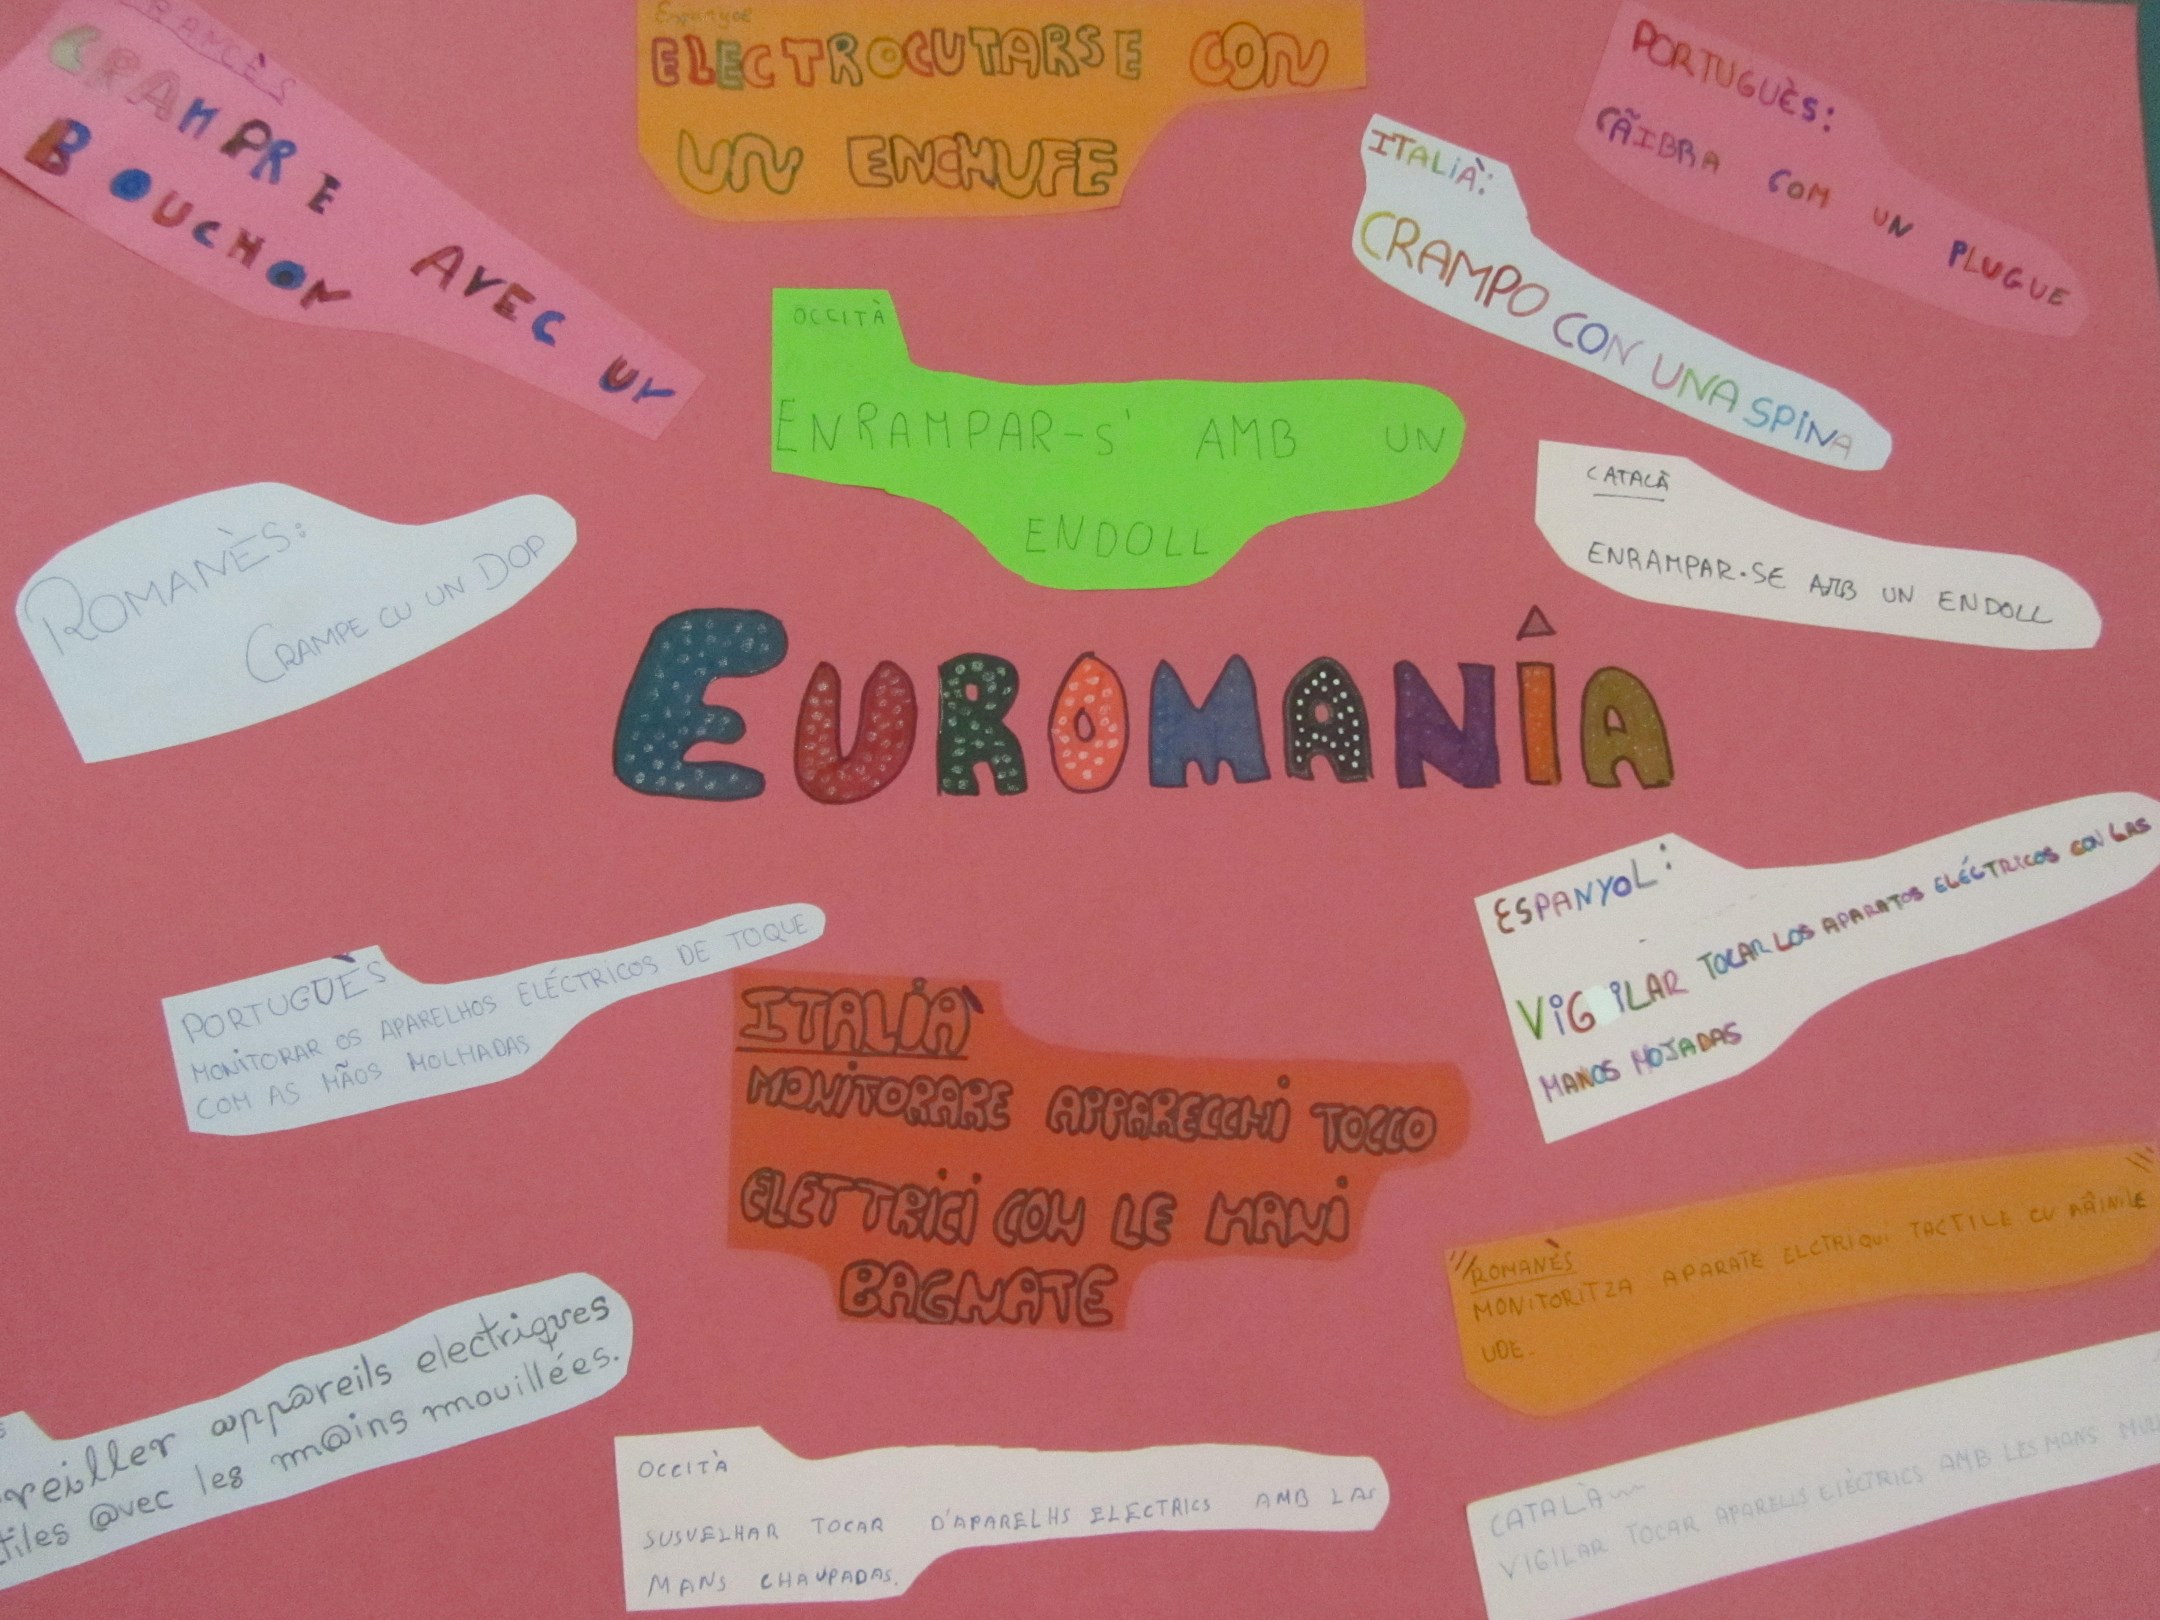 FRANCÈS
CRAMPRE AVEC UN
BOUCHON
Espanyol
ELECTROCUTARSE CON
UN ENCHUFE
PORTUGUÈS:
CÃIBRA COM UN PLUGUE
ITALIÀ:
CRAMPO CON UNA SPINA
OCCITÀ
ENRAMPAR-S' AMB UN
ENDOLL
CATALÀ
ENRAMPAR-SE AMB UN ENDOLL
ROMANÈS:
CRAMPE CU UN DOP
EUROMANÍA
PORTUGUÈS
MONITORAR OS APARELHOS ELÉCTRICOS DE TOQUE
COM AS MÃOS MOLHADAS
ITALIÀ
MONITORARE APPARECCHI TOCCO
ELETTRICI CON LE MANI
BAGNATE
ESPANYOL:
VIGILAR TOCAR LOS APARATOS ELÉCTRICOS CON LAS
MANOS MOJADAS
ROMANÈS
MONITORITZA APARATE ELCTRIQUI TACTILE CU MÂINILE
UDE.
reiller app@reils electriques
tiles @vec les m@ins mouillées.
OCCITÀ
SUSVELHAR TOCAR D'APARELHS ELECTRICS AMB LAS
MANS CHAUPADAS.
CATALÀ
VIGILAR TOCAR APARELLS ELÈCTRICS AMB LES MANS